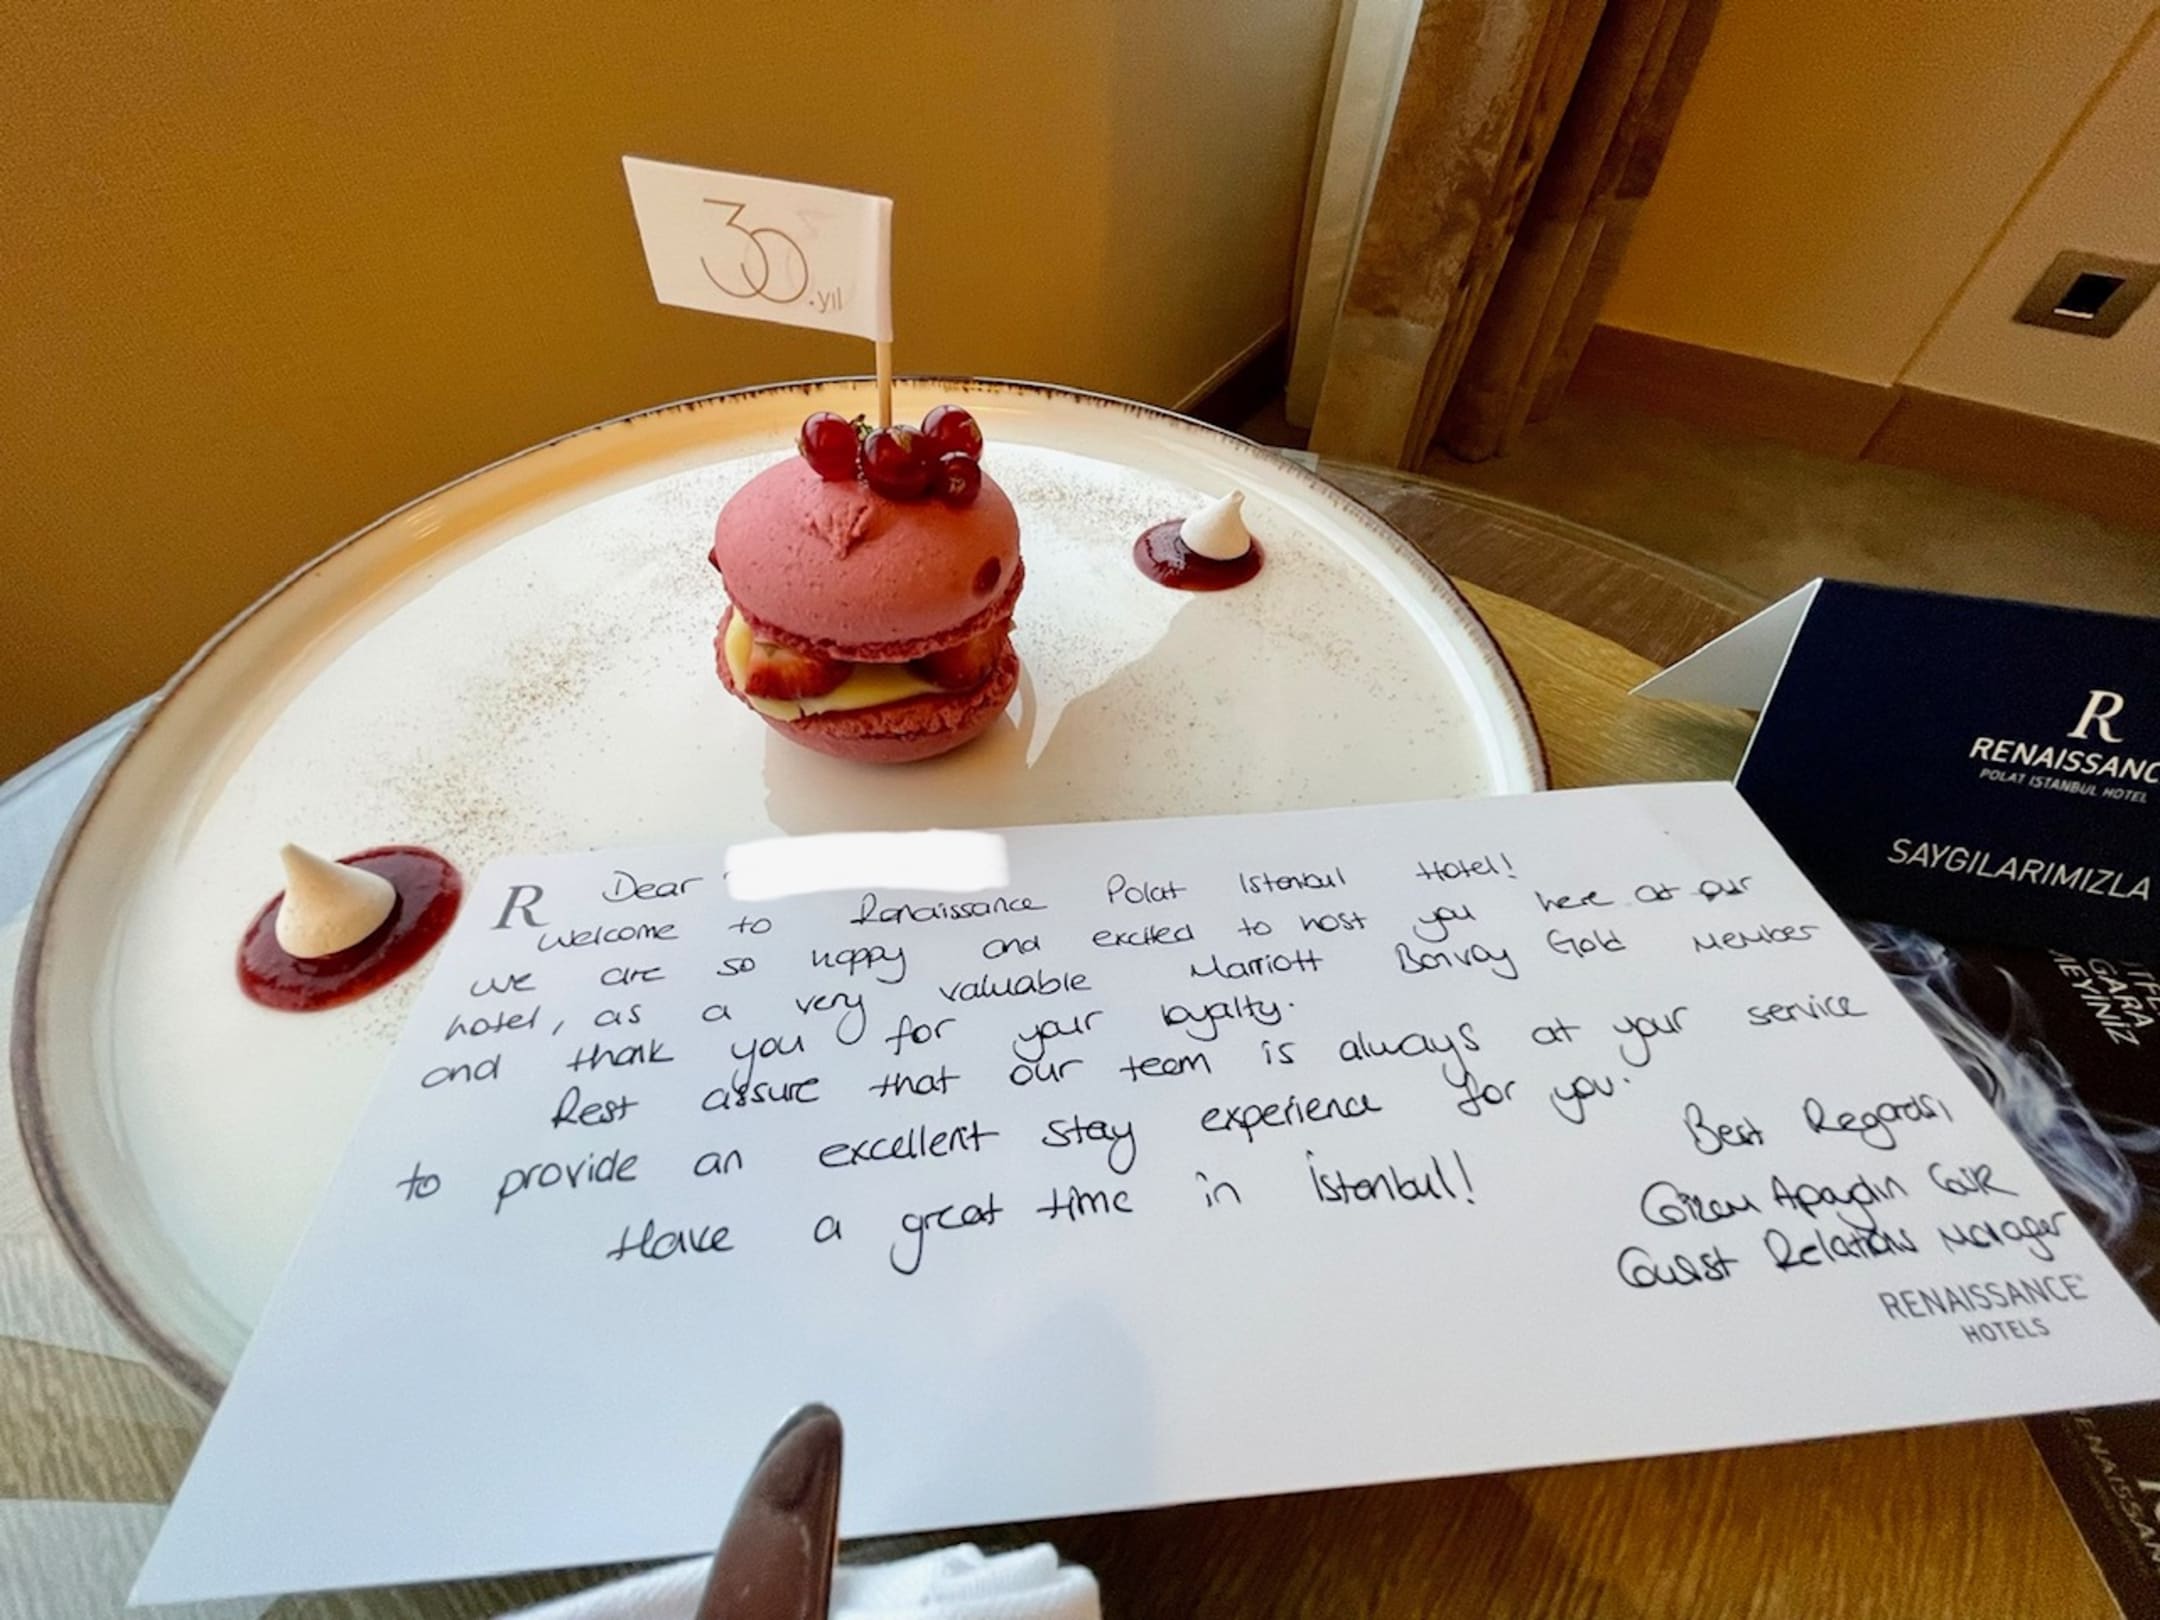 30.yıl
R
RENAISSANC
POLAT ISTANBUL HOTEL
SAYGILARIMIZLA
GARA
MEYİNİZ
R Dear
Welcome to Renaissance Polat Istanbul Hotel!
We are so happy and excited to host you here at our
hotel, as a very valuable Marriott Bonvoy Gold Member
and thank you for your loyalty.
Rest assure that our team is always at your service
to provide an excellent stay experience for you.
Have a great time in İstanbul!
Best Regards,
Gizem Apaydın
Guest Relations Manager
RENAISSANCE
HOTELS
ENAISSAN